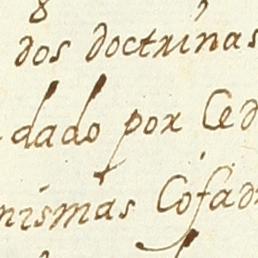 dos doctrinas
dado por Ced
nismas Cofad